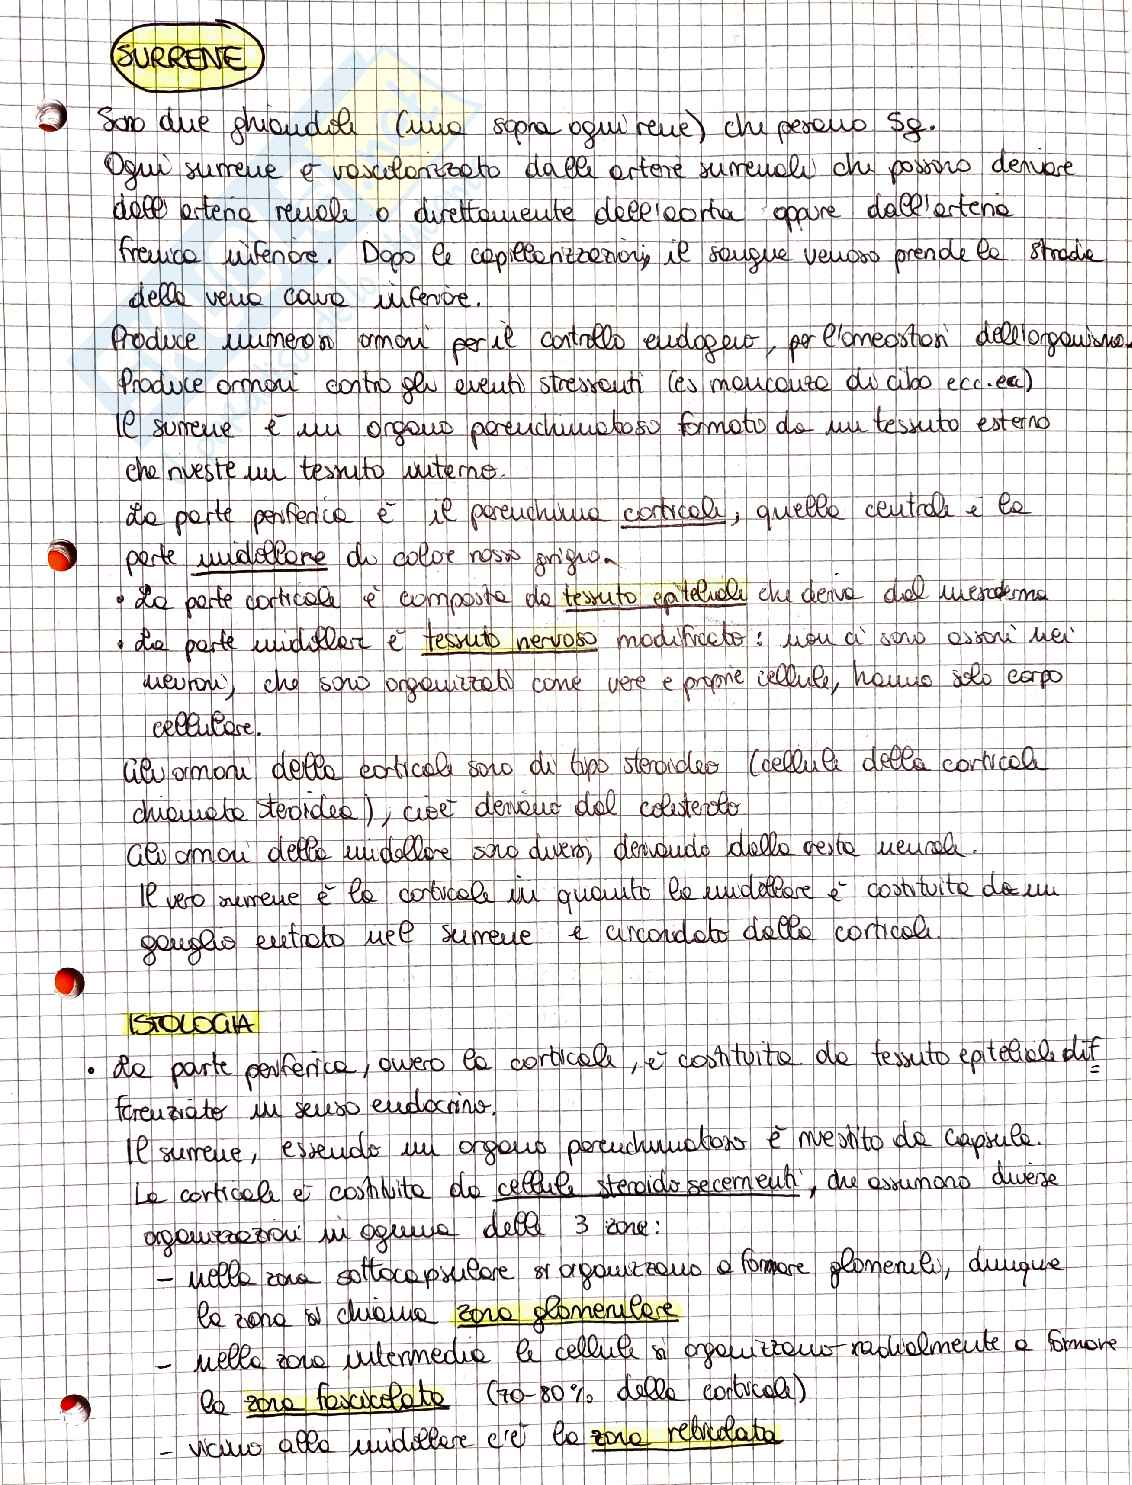 SURRENE
Sono due ghiandole (una sopra ogni rene) che pesano 5g.
Ogni surrene è vascolarizzato dalle arterie surrenali che possono derivare
dall'arteria renale o direttamente dall'aorta oppure dall'arteria
frenica inferiore. Dopo le capillarizzazioni, il sangue venoso prende la strada
della vena cava inferiore.
Produce numerosi ormoni per il controllo endogeno, per l'omeostasi dell'organismo.
Produce ormoni contro gli eventi stressanti (es mancanza di cibo ecc. ecc)
Il surrene è un organo parenchimatoso formato da un tessuto esterno
che riveste un tessuto interno.
La parte periferica è il parenchima corticale, quella centrale è la
parte midollare di color rosso grigio.
• La parte corticale è composta da tessuto epiteliale che deriva dal mesoderma
• La parte midollare è tessuto nervoso modificato: non ci sono assoni nei
neuroni, che sono organizzati come vere e proprie cellule, hanno solo corpo
cellulare.
Gli ormoni della corticale sono di tipo steroideo (cellule della corticale
chiamate steroidee), cioè derivano dal colesterolo
Gli ormoni della midollare sono diversi, derivando dalla cresta neurale.
Il vero surrene è la corticale in quanto la midollare è costituita da un
ganglio entrato nel surrene e circondato dalla corticale.
ISTOLOGIA
• La parte periferica, ovvero la corticale, è costituita da tessuto epiteliale dif
ferenziato in senso endocrino.
Il surrene, essendo un organo parenchimatoso è rivestito da capsula.
La corticale è costituita da cellule steroidosecernenti, che assumono diverse
organizzazioni in ognuna delle 3 zone:
- nella zona sottocapsulare si organizzano a formare glomeruli, dunque
la zona si chiama zona glomerulare
- nella zona intermedia le cellule si organizzano radialmente a formare
la zona fascicolata (70-80% della corticale)
- vicino alla midollare c'è la zona reticolata